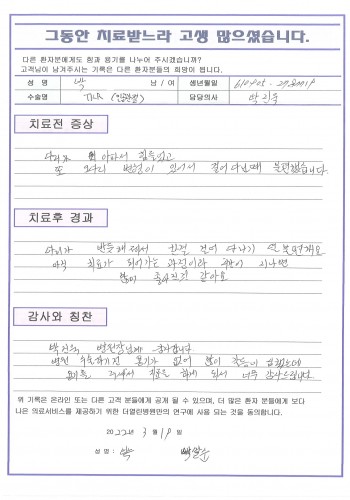 그동안 치료받느라 고생 많으셨습니다.
다른 환자분에게도 힘과 용기를 나누어 주시겠습니까?
고객님이 남겨주시는 기록은 다른 환자분들의 희망이 됩니다.
성 명 박 남 / 여 생년월일
수술명 TKR (인공관절) 담당의사 박진욱
치료전 증상
다리가 아파서 힘들었고
또 오다리 변형이 있어서 걸어다닐때 불편했습니다
치료후 경과
다리가 반듯해져서
아직 치료가 되어가는 과정이라 시간이 지나면
많이 좋아질것 같아요
감사와 칭찬
박진욱 병원장님께 감사합니다
병원 용기가 없어 많이
용기를 주셔서 치료를 하게 되서 너무 감사드립니다.
위 기록은 온라인 또는 다른 고객 분들에게 공개 될 수 있으며, 더 많은 환자 분들에게 보다
나은 의료서비스를 제공하기 위한 더열린병원만의 연구에 사용 되는 것을 동의합니다.
2022년 3월 19일
성 명 : 박